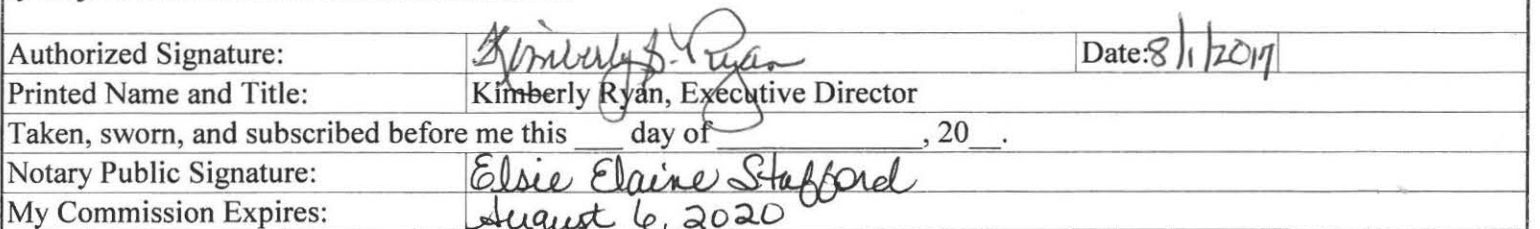 Authorized Signature: Kimberly S. Ryan Date: 8/1/2017
Printed Name and Title: Kimberly Ryan, Executive Director
Taken, sworn, and subscribed before me this ___ day of ______________, 20__.
Notary Public Signature: Elsie Elaine Stafford
My Commission Expires: August 6, 2020